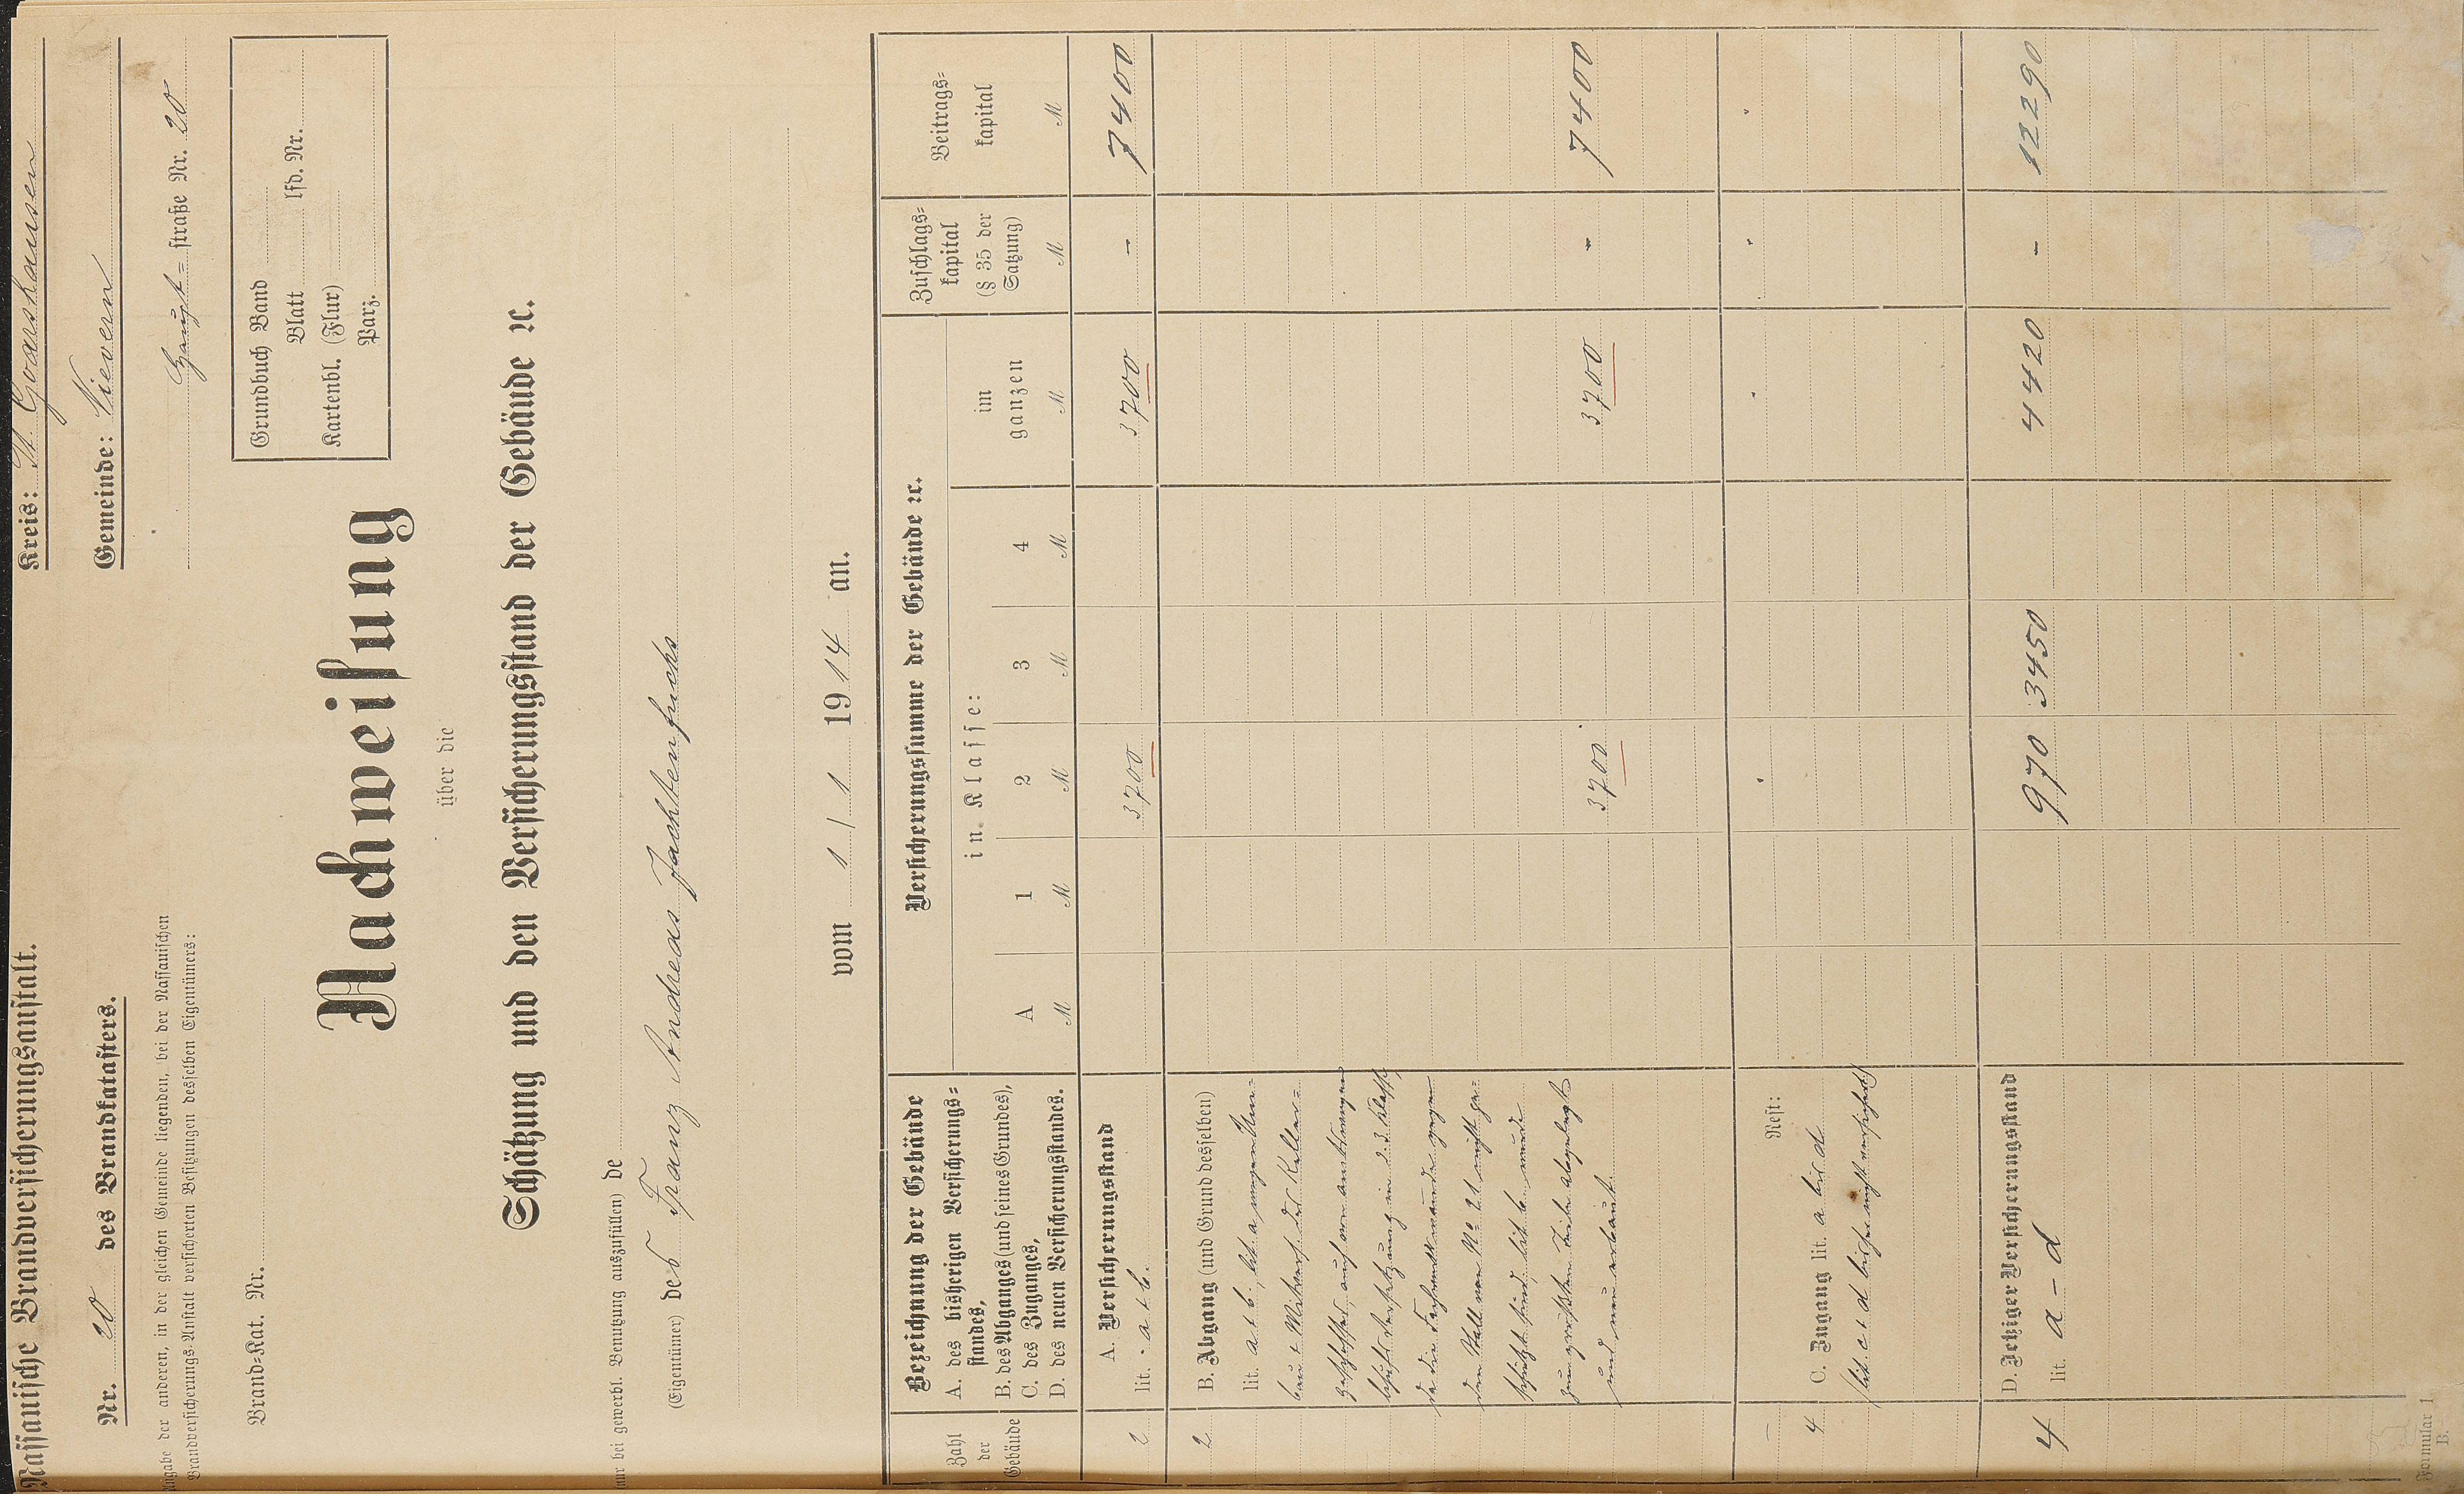 Nassauische Brandversicherungsanstalt.
Kreis: St. Goarshausen
Nr. 20 des Brandkatasters.
Gemeinde: Nievern
Haupt=straße Nr. 20
Angabe der anderen, in der gleichen Gemeinde liegenden, bei der Nassauischen
Brandversicherungs-Anstalt versicherten Besitzungen desselben Eigentümers:
Brand=Kat. Nr.
Grundbuch Band
Blatt lfd. Nr.
Kartenbl. (Flur)
Parz.
Nachweisung
über die
Schätzung und den Versicherungsstand der Gebäude ꝛc.
nur bei gewerbl. Benutzung auszufüllen) de
(Eigentümer) des Franz Andreas Fachbenfuchs
vom 1 / 1 1914 an.
Zahl
der
Gebäude
Bezeichnung der Gebäude
A. des bisherigen Versicherungs=
standes,
B. des Abganges (und seines Grundes),
C. des Zuganges,
D. des neuen Versicherungsstandes.
Versicherungssumme der Gebäude ꝛc.
in Klasse:
A 1 2 3 4 im
ganzen
M M M M M M
Zuschlags=
kapital
(§ 35 der
Satzung)
M
Beitrags=
kapital
M
A. Versicherungsstand
2 lit. a + b. 3700 3700 – 7400
2 B. Abgang (und Grund desselben)
lit. a + b, lit. a wegen Um=
bau + des Keller=
auf
in d. 3. Klasse,
da die gegen
den Stall von No 21 nicht ge=
schützt sind, lit. b. wurde
zum größten Teile abgelegt
und neu erbaut. 3700 3700 – 7400
– Rest:
4 C. Zugang lit. a bis d
(lit. c + d bisher nicht versichert)
D. Jetziger Versicherungsstand
4 lit. a – d 970 3450 4420 – 12290
Formular 1
B.